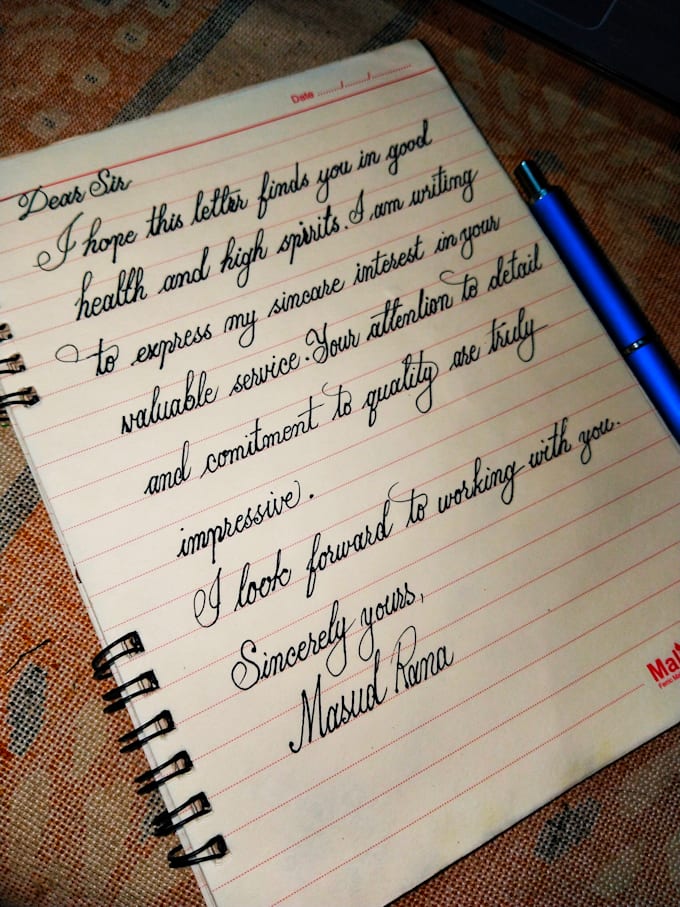 Date ......./......./............
Dear Sir
I hope this letter finds you in good
health and high spirits. I am writing
to express my sincare interest in your
valuable service. Your attention to detail
and comitment to quality are truly
impressive.
I look forward to working with you.
Sincerely yours,
Masud Rana